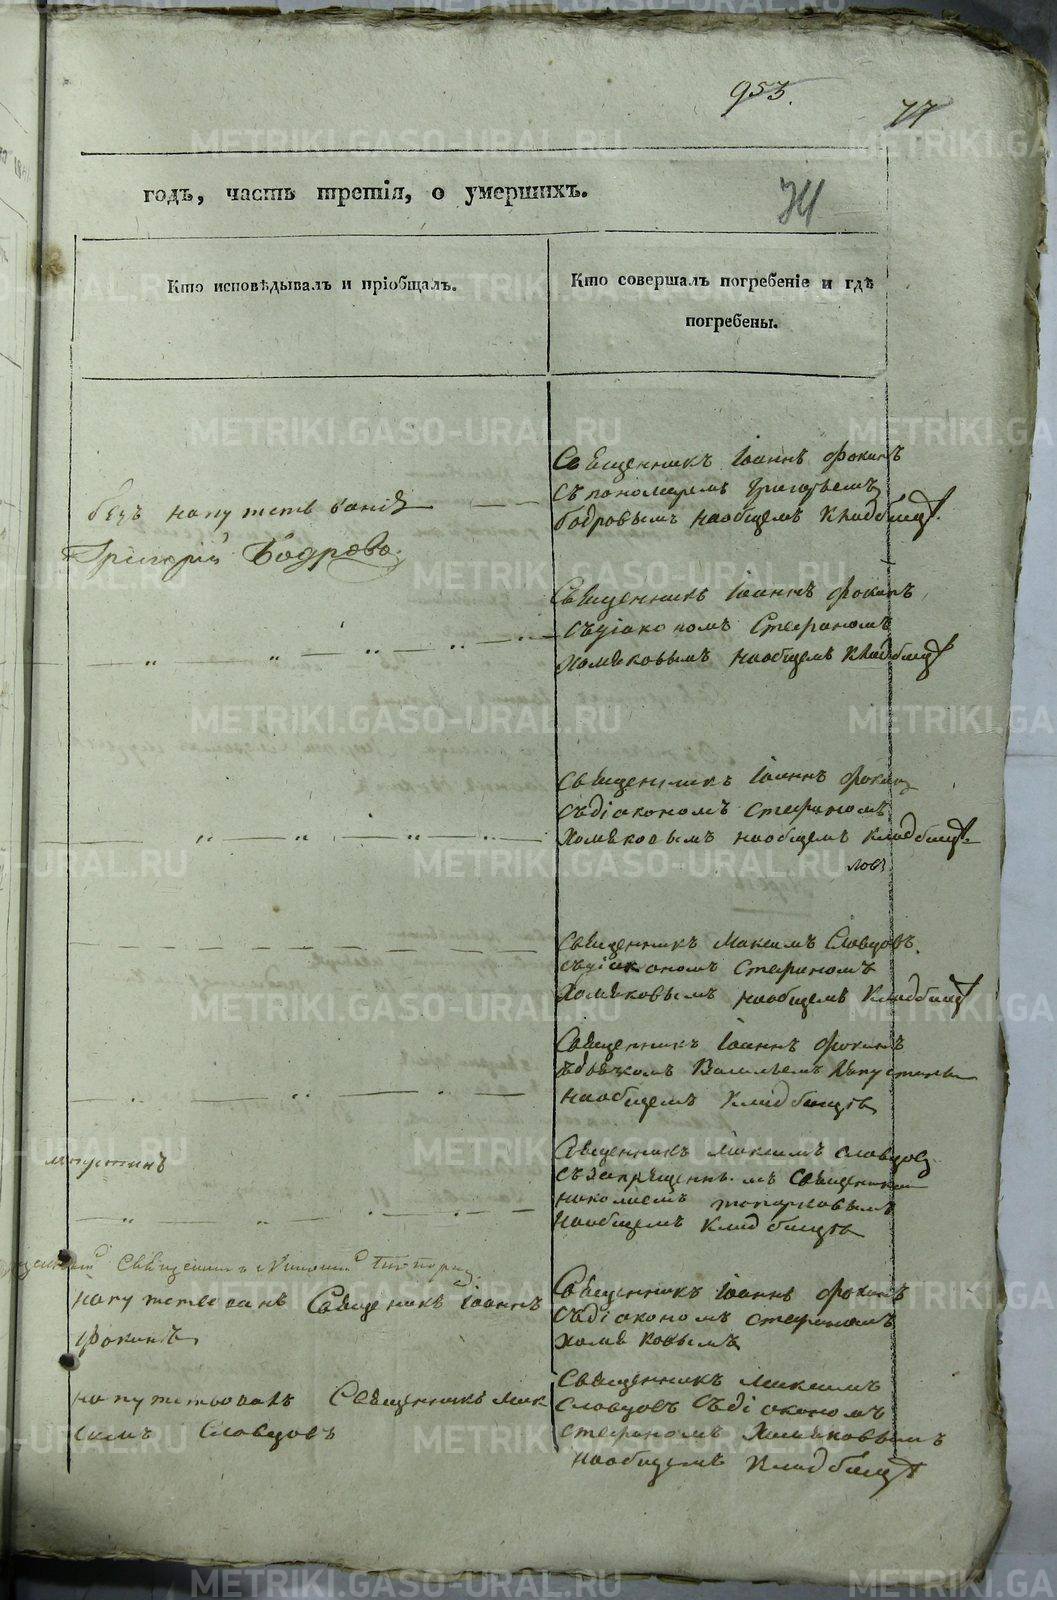 953.
77
74
годъ, часть третія, о умершихъ.
Кто исповѣдывалъ и пріобщалъ.
Кто совершалъ погребеніе и гдѣ
погребены.
Священникъ Іоаннъ Фокинъ
съ пономаремъ Григорьемъ
Бодровымъ наобщемъ кладбищѣ.
безъ напутствованія
Григорій Бодровъ
Священникъ Іоаннъ Фокинъ
съдіакономъ Стефаномъ
Хомяковымъ наобщемъ кладбищѣ
Священникъ Іоаннъ Фокинъ
съдіакономъ Стефаномъ
Хомяковымъ наобщемъ кладбищѣ
Священникъ Максимъ Словцовъ
съдіакономъ Стефаномъ
Хомяковымъ наобщемъ кладбищѣ
Священникъ Іоаннъ Фокинъ
Васильемъ
наобщемъ кладбищѣ
Священникъ Максимъ Словцовъ
съзапрещеннымъ Священникомъ
Николаемъ Топорковымъ
наобщемъ кладбищѣ
Священникъ
напутствованъ Священникъ Іоаннъ
Фокинъ
Священникъ Іоаннъ Фокинъ
съдіакономъ Стефаномъ
Хомяковымъ
напутствовалъ Священникъ Мак
симъ Словцовъ
Священникъ Максимъ
Словцовъ съдіакономъ
Стефаномъ Хомяковымъ
наобщемъ кладбищѣ
METRIKI.GASO-URAL.RU